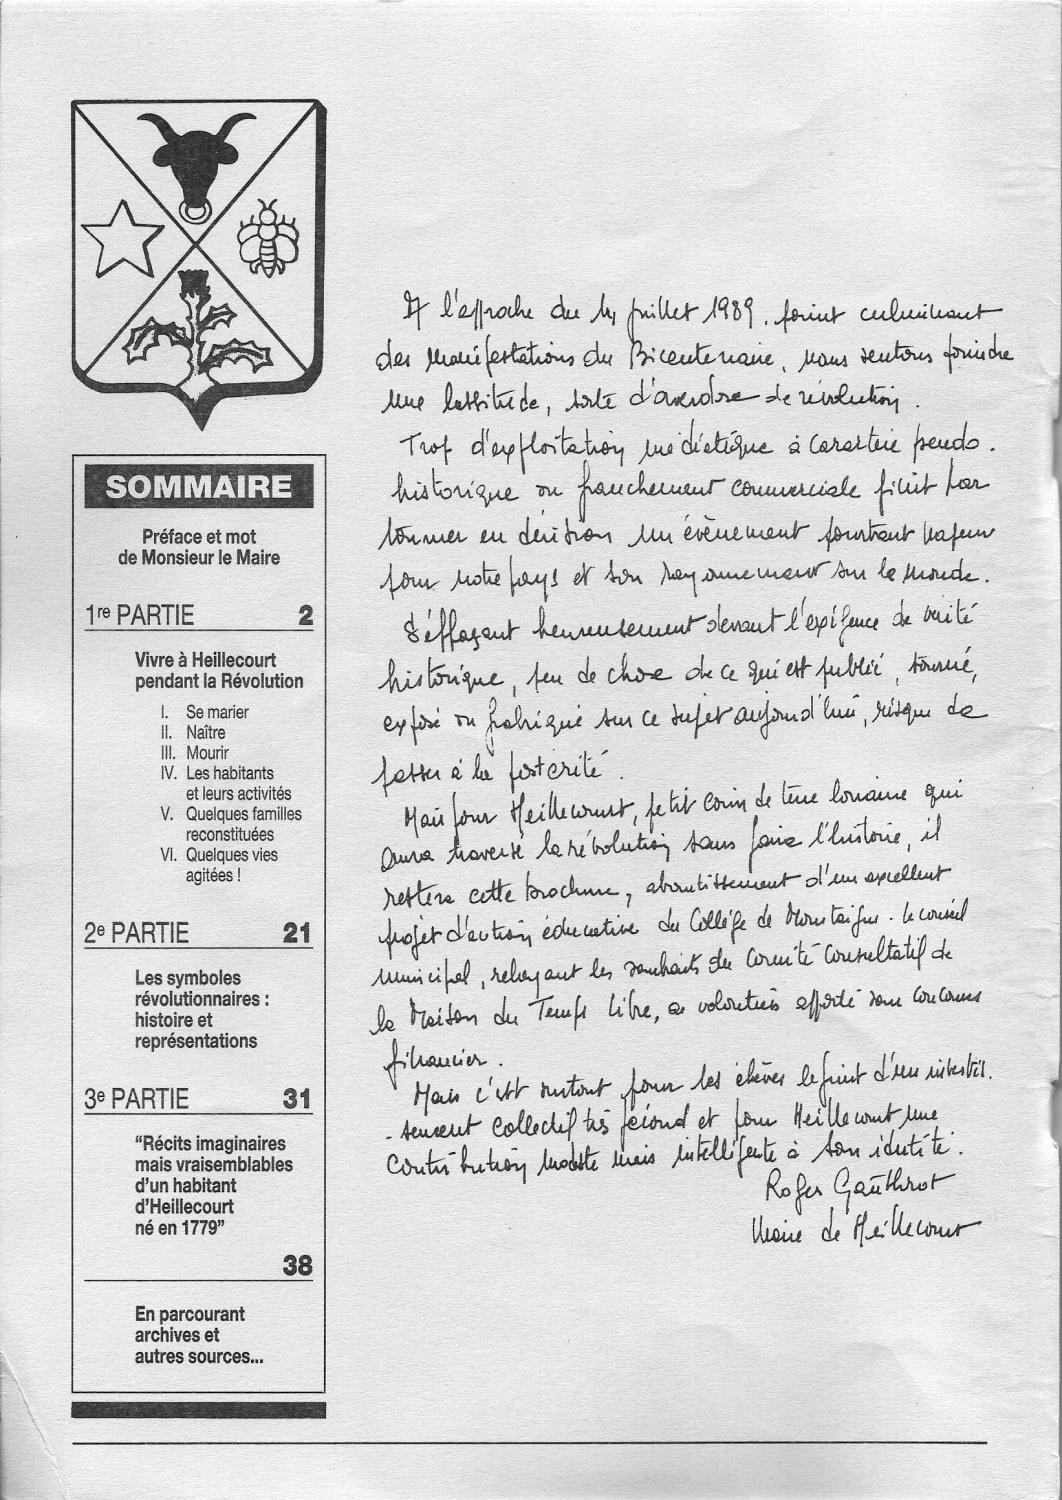 SOMMAIRE
Préface et mot
de Monsieur le Maire
1re PARTIE 2
Vivre à Heillecourt
pendant la Révolution
I. Se marier
II. Naître
III. Mourir
IV. Les habitants
et leurs activités
V. Quelques familles
reconstituées
VI. Quelques vies
agitées !
2e PARTIE 21
Les symboles
révolutionnaires :
histoire et
représentations
3e PARTIE 31
“Récits imaginaires
mais vraisemblables
d’un habitant
d’Heillecourt
né en 1779”
38
En parcourant
archives et
autres sources...
A l'approche du 14 juillet 1989, point culminant
des manifestations du Bicentenaire, nous sentons poindre
une lassitude, sorte d'overdose de révolution.
Trop d'exploitation médiatique à caractère pseudo-
historique ou franchement commerciale finit par
tourner en dérision un évènement pourtant majeur
pour notre pays et son rayonnement sur le monde.
S'effaçant heureusement devant l'exigence de vérité
historique, peu de chose de ce qui est publié, tourné,
exposé ou fabriqué sur ce sujet aujourd'hui, risque de
passer à la postérité.
Mais pour Heillecourt, petit coin de terre lorraine qui
aura traversé la révolution sans faire l'histoire, il
restera cette brochure, aboutissement d'un excellent
projet d'action éducative du Collège de Montaigu. Le conseil
municipal, relayant les souhaits du Comité Consultatif de
la Maison du Temps Libre, a volontiers apporté son concours
financier.
Mais c'est surtout pour les élèves le fruit d'un investis-
-sement collectif très fécond et pour Heillecourt une
contribution modeste mais intelligente à son identité.
Roger Gauthrot
Maire de Heillecourt